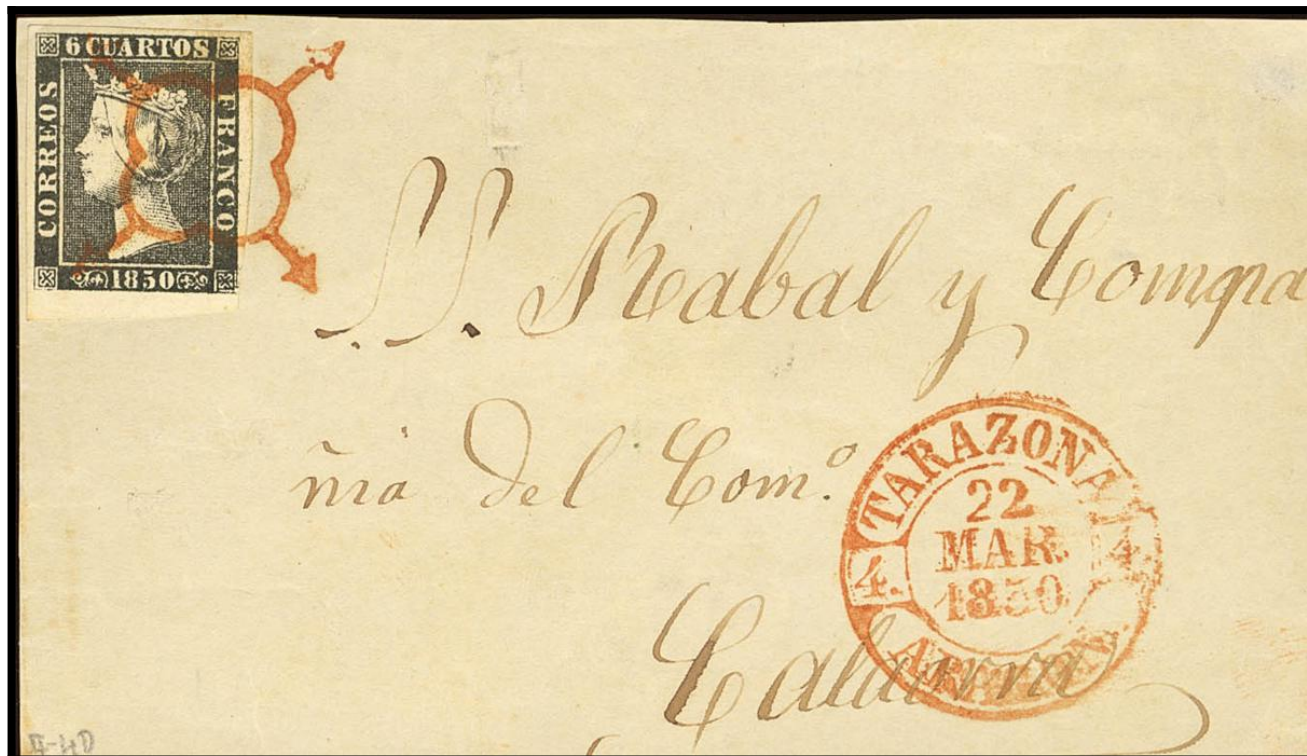 6 CUARTOS
CORREOS
FRANCO
1850
S. S. Rabal y Compa
ñia del Com.º
TARAZONA
22
MAR.
1850
4.
4.
ARAGON
Calaorra